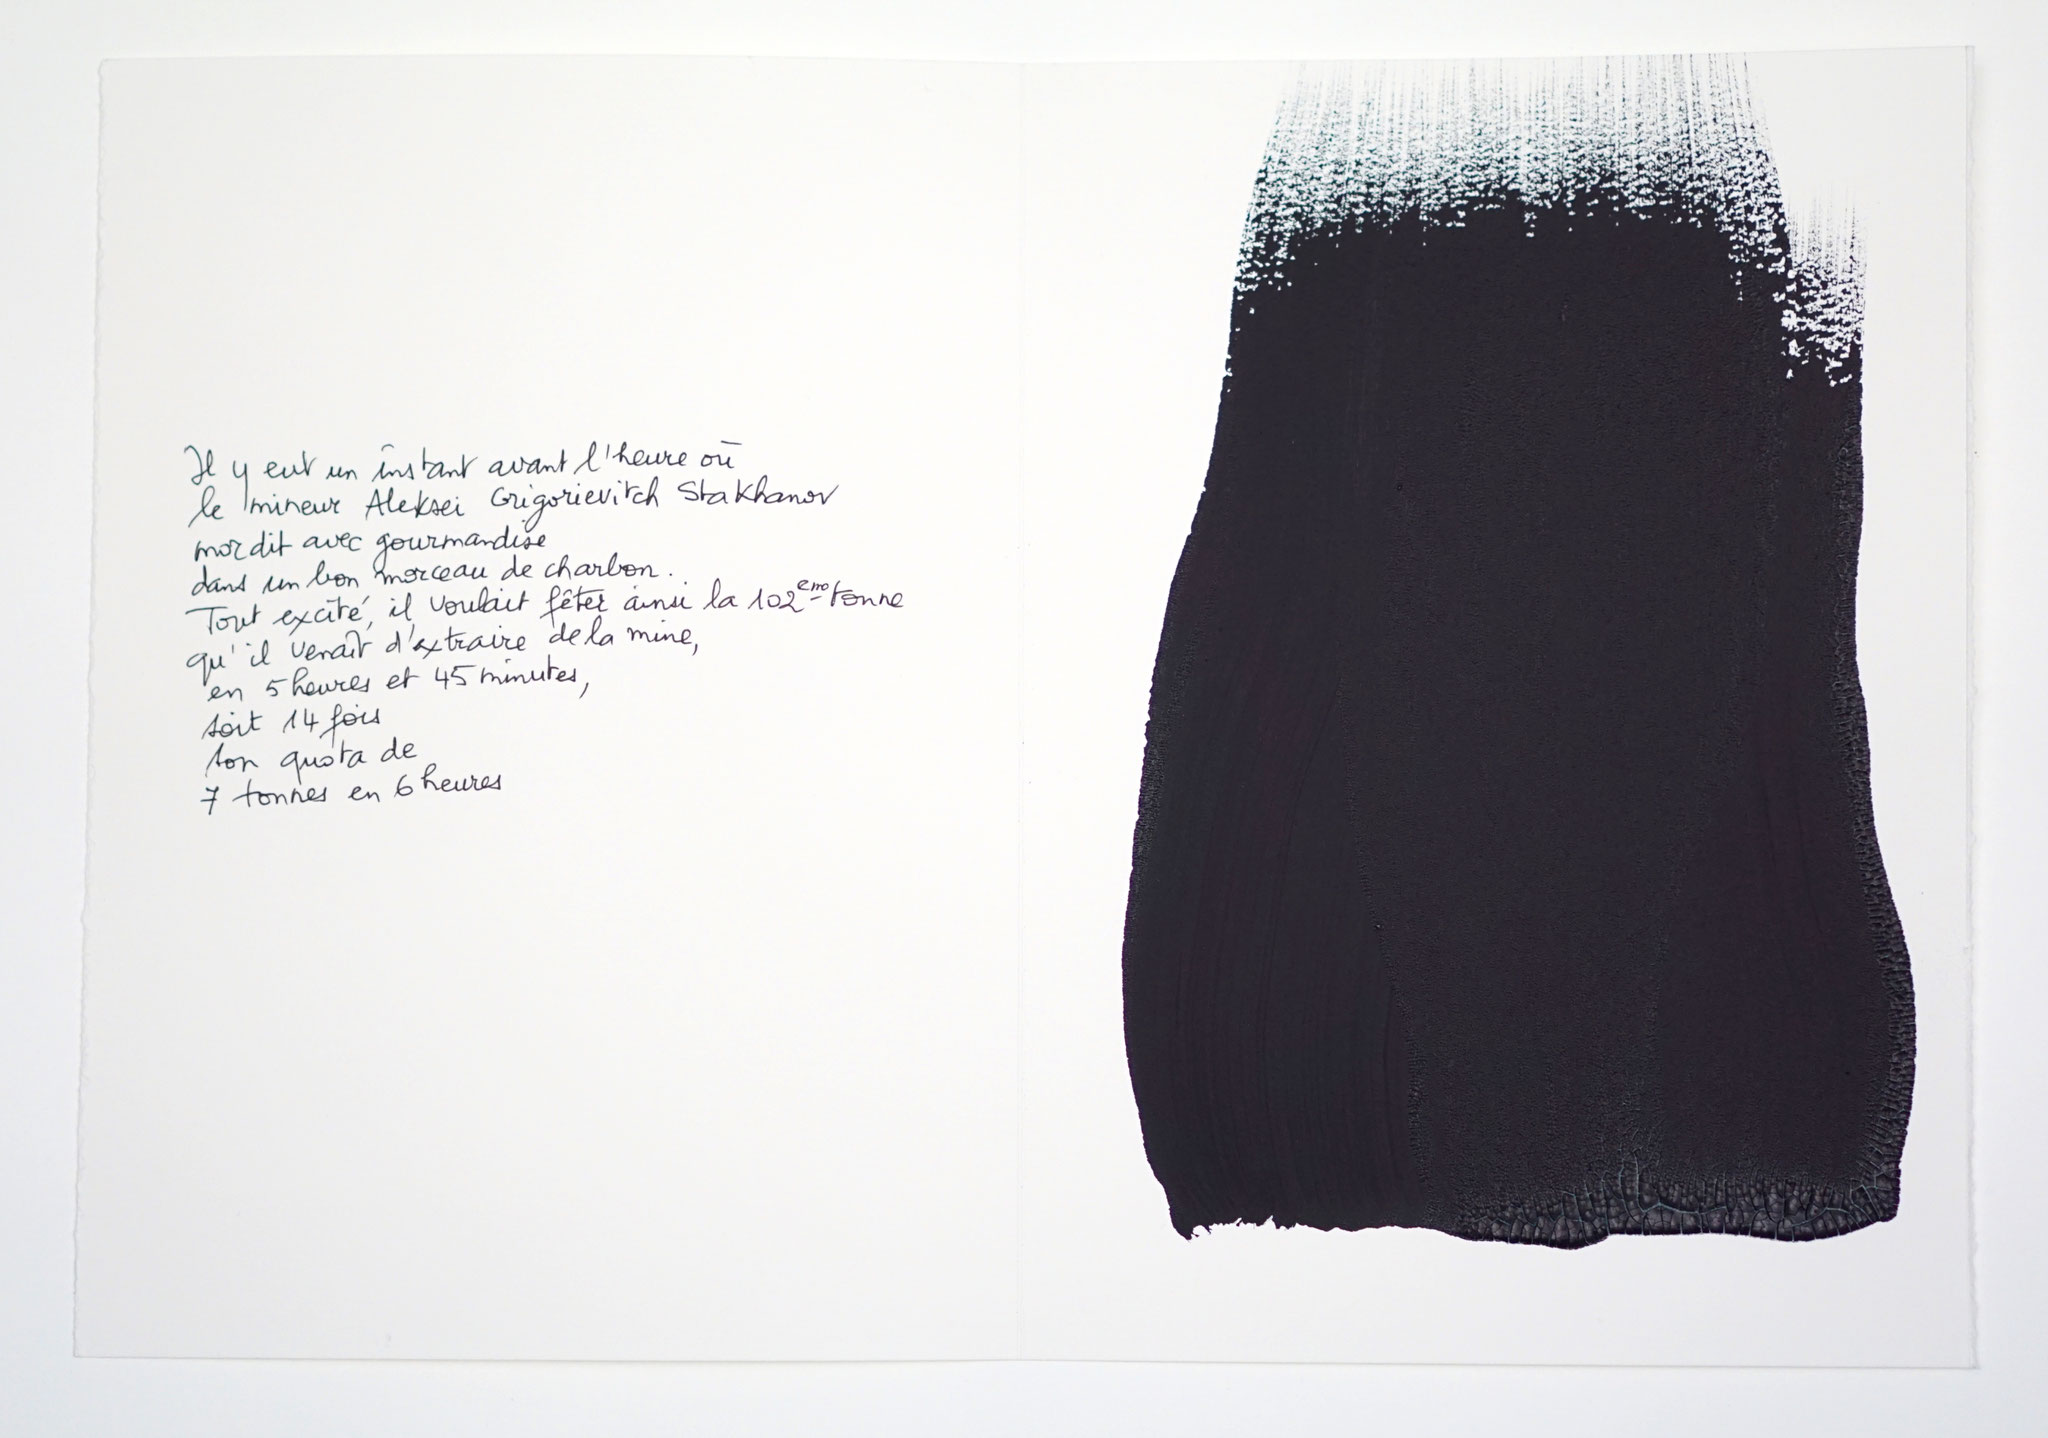 Il y eut un instant avant l'heure où
le mineur Aleksei Grigorievitch Stakhanov
mordit avec gourmandise
dans un bon morceau de charbon.
Tout excité, il voulait fêter ainsi la 102eme tonne
qu'il venait d'extraire de la mine,
en 5 heures et 45 minutes,
soit 14 fois
son quota de
7 tonnes en 6 heures